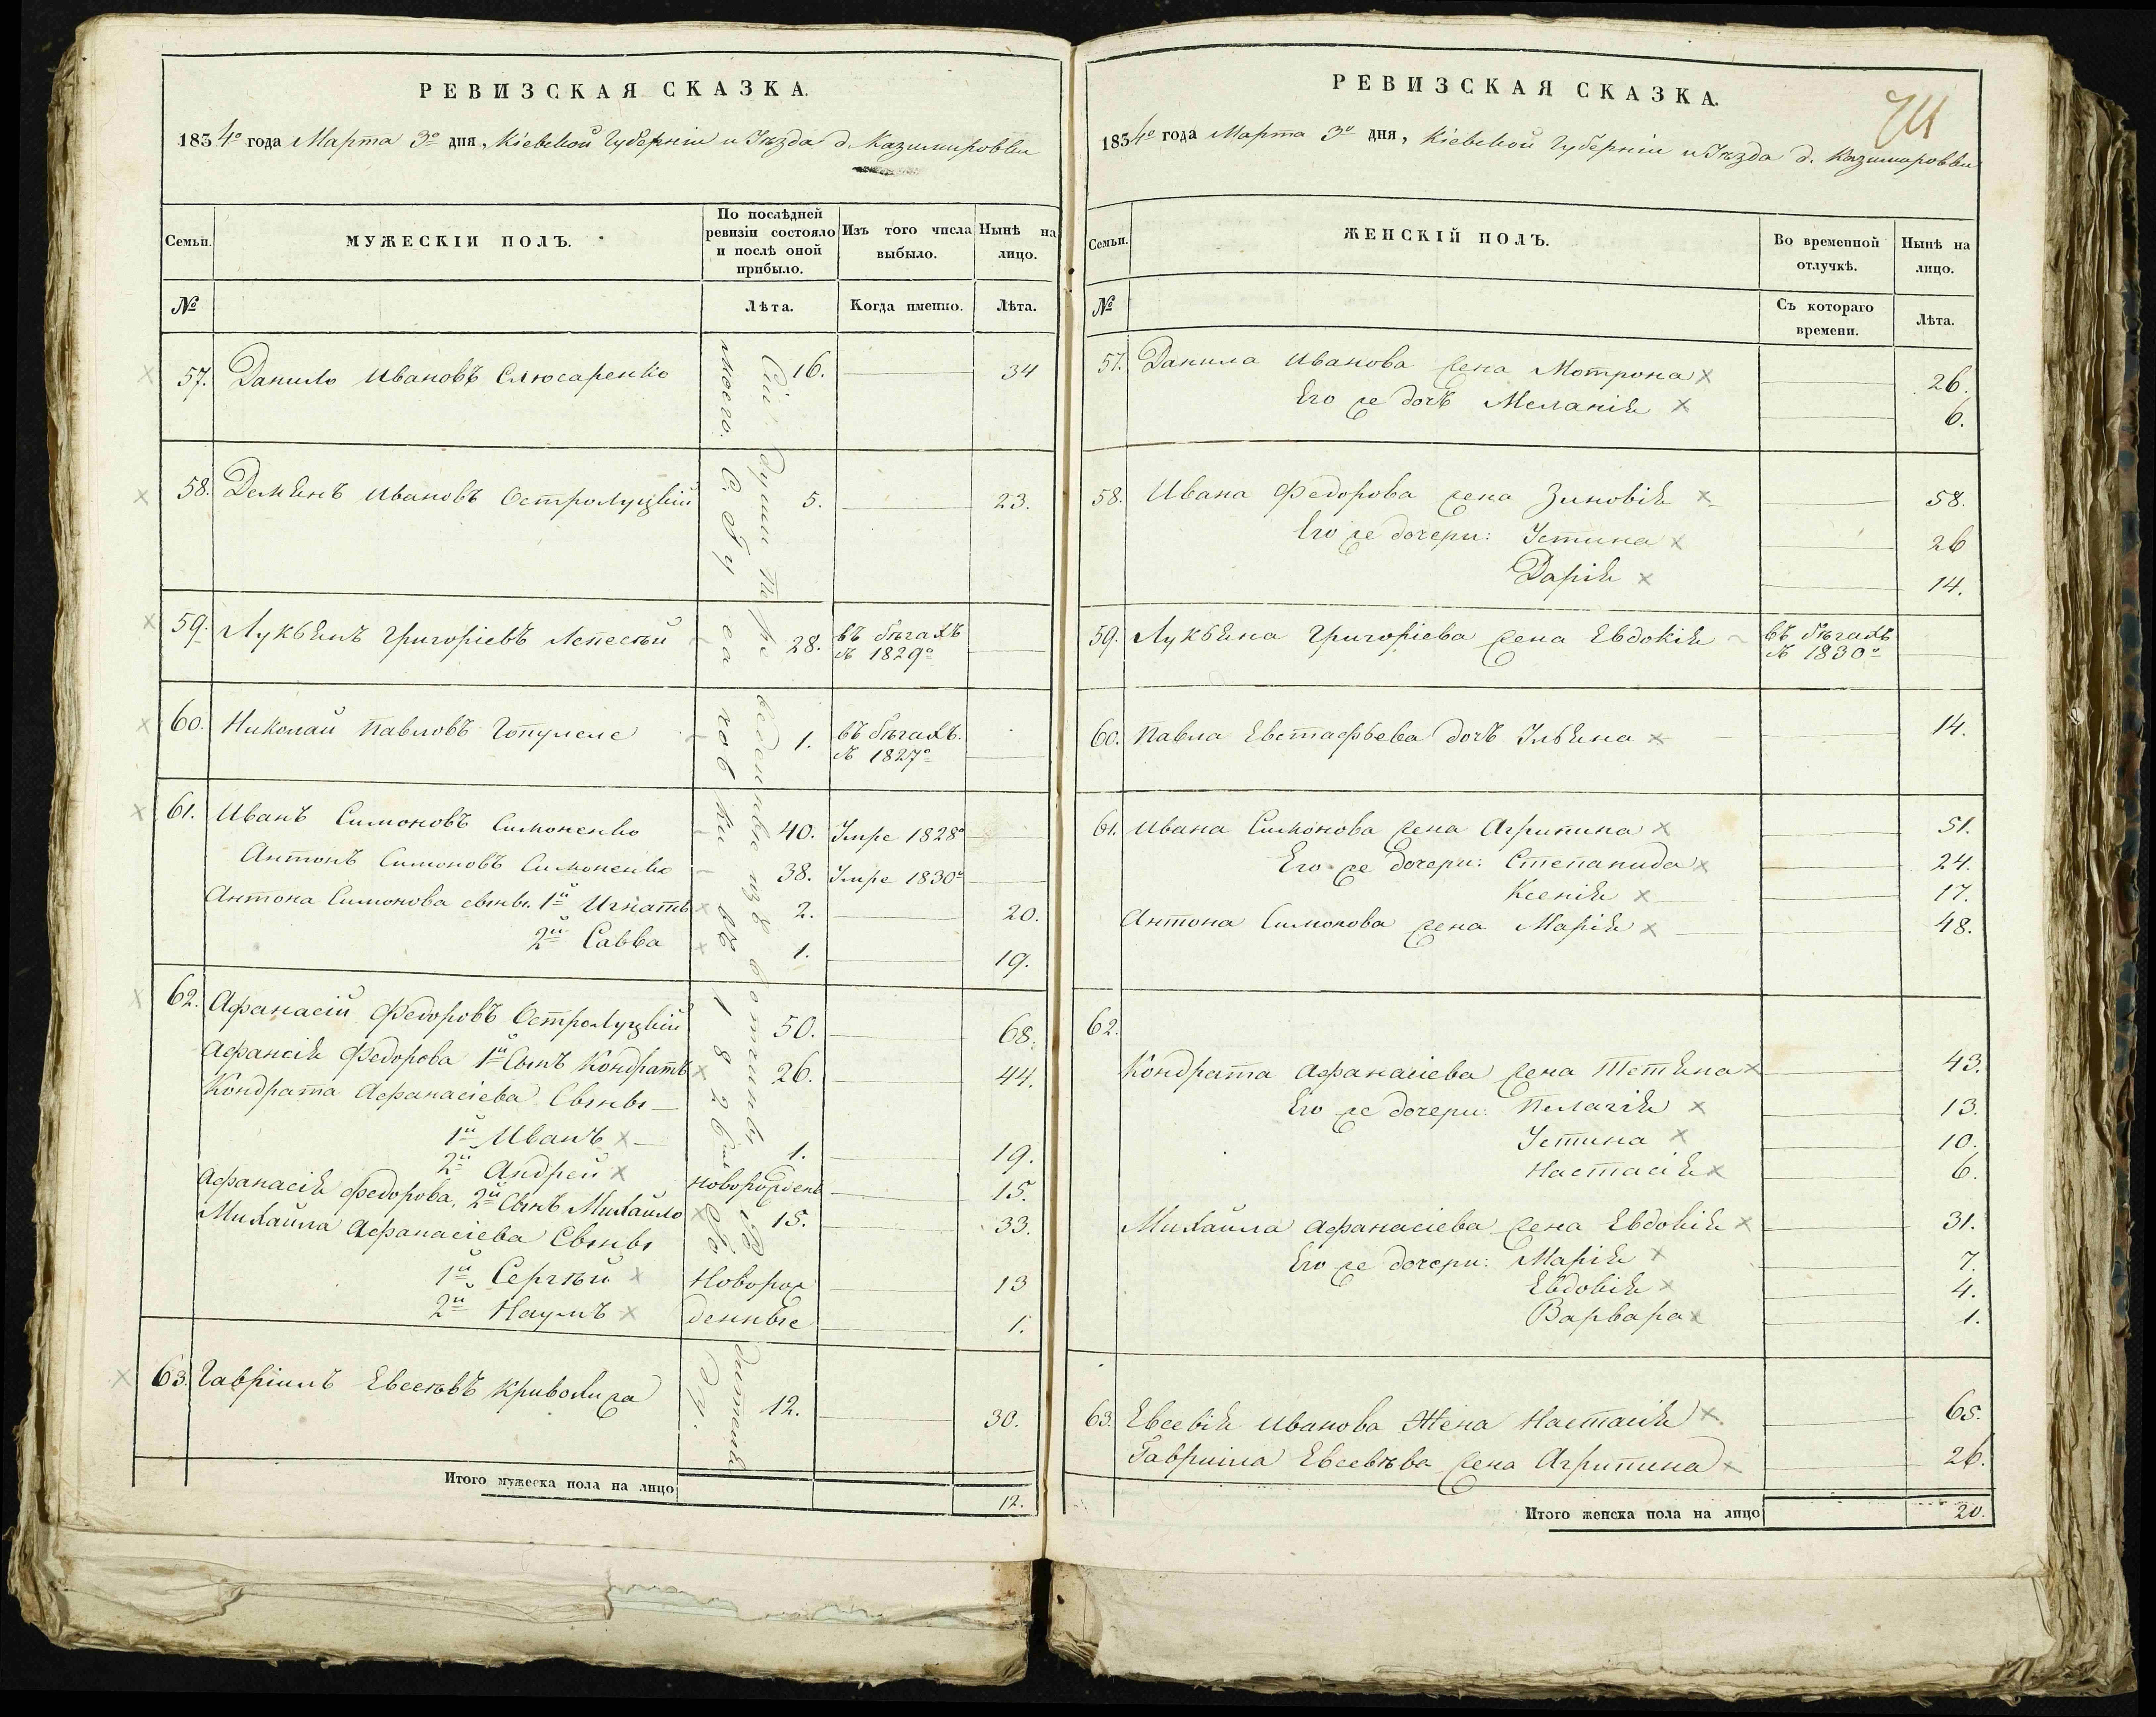 РЕВИЗСКАЯ СКАЗКА.
1834го года Марта 3го дня, Кіевской Губерніи и Уѣзда д. Казимировки
Семьи.
МУЖЕСКІЙ ПОЛЪ.
По послѣдней ревизіи состояло и послѣ оной прибыло.
Изъ того числа выбыло.
Нынѣ на лицо.
№
Лѣта.
Когда именно.
Лѣта.
57. Данило Ивановъ Слюсаренко 16. 34
58. Демянъ Ивановъ Остролуцкій 5. 23.
59. Лукьянъ Григоріевъ 28. въ бѣгахъ съ 1829го
60. Николай Павловъ 1. въ бѣгахъ. съ 1827го
61. Иванъ Симоновъ Симоненко 40. Умре 1828го
Антонъ Симоновъ Симоненко 38. Умре 1830го
Антона Симонова сыны. 1й Игнатъ 2. 20.
2й Савва 1. 19.
62. Афанасій Федоровъ Остролуцкій 50. 68.
Афанасія Федорова 1й Сынъ Кондратъ 26. 44.
Кондрата Афанасіева Сыны
1й Иванъ 1. 19.
2й Андрей новорожденъ 15.
Афанасія Федорова, 2й Сынъ Михайло 15. 33.
Михайла Афанасіева Сыны
1й Сергѣй Новорож 13
2й Наумъ денные 1.
63. Гавріилъ Евсеѣвъ Кривохижа 12. 30.
Сіи души переведенны изъ вотчины
моего
въ 1826м
Итого мужеска пола на лицо 12.
РЕВИЗСКАЯ СКАЗКА.
1834го года Марта 3го дня, Кіевской Губерніи и Уѣзда д. Казимировки
Семьи.
ЖЕНСКІЙ ПОЛЪ.
Во временной отлучкѣ.
Нынѣ на лицо.
№
Съ котораго времени.
Лѣта.
57. Данила Иванова жена Мотрона 26.
Его же дочь Меланія 6.
58. Ивана Федорова жена Зиновія 58.
Его же дочери: Устина 26
Дарія 14.
59. Лукьяна Григоріева жена Евдокія въ бѣгахъ съ 1830го
60. Павла Евстафьева дочь Ульяна 14.
61. Ивана Симонова жена Агрипина 51.
Его же дочери: Степанида 24.
Ксенія 17.
Антона Симонова жена Марія 48.
62.
Кондрата Афанасіева жена Тетяна 43.
Его же дочери: Пелагія 13.
Устина 10.
Настасія 6.
Михайла Афанасіева жена Евдокія 31.
Его же дочери: Марія 7.
Евдокія 4.
Варвара 1.
63. Евсевія Иванова Жена Настасія 65.
Гавриила Евсевѣва жена Агрипина 26.
Итого женска пола на лицо 20.